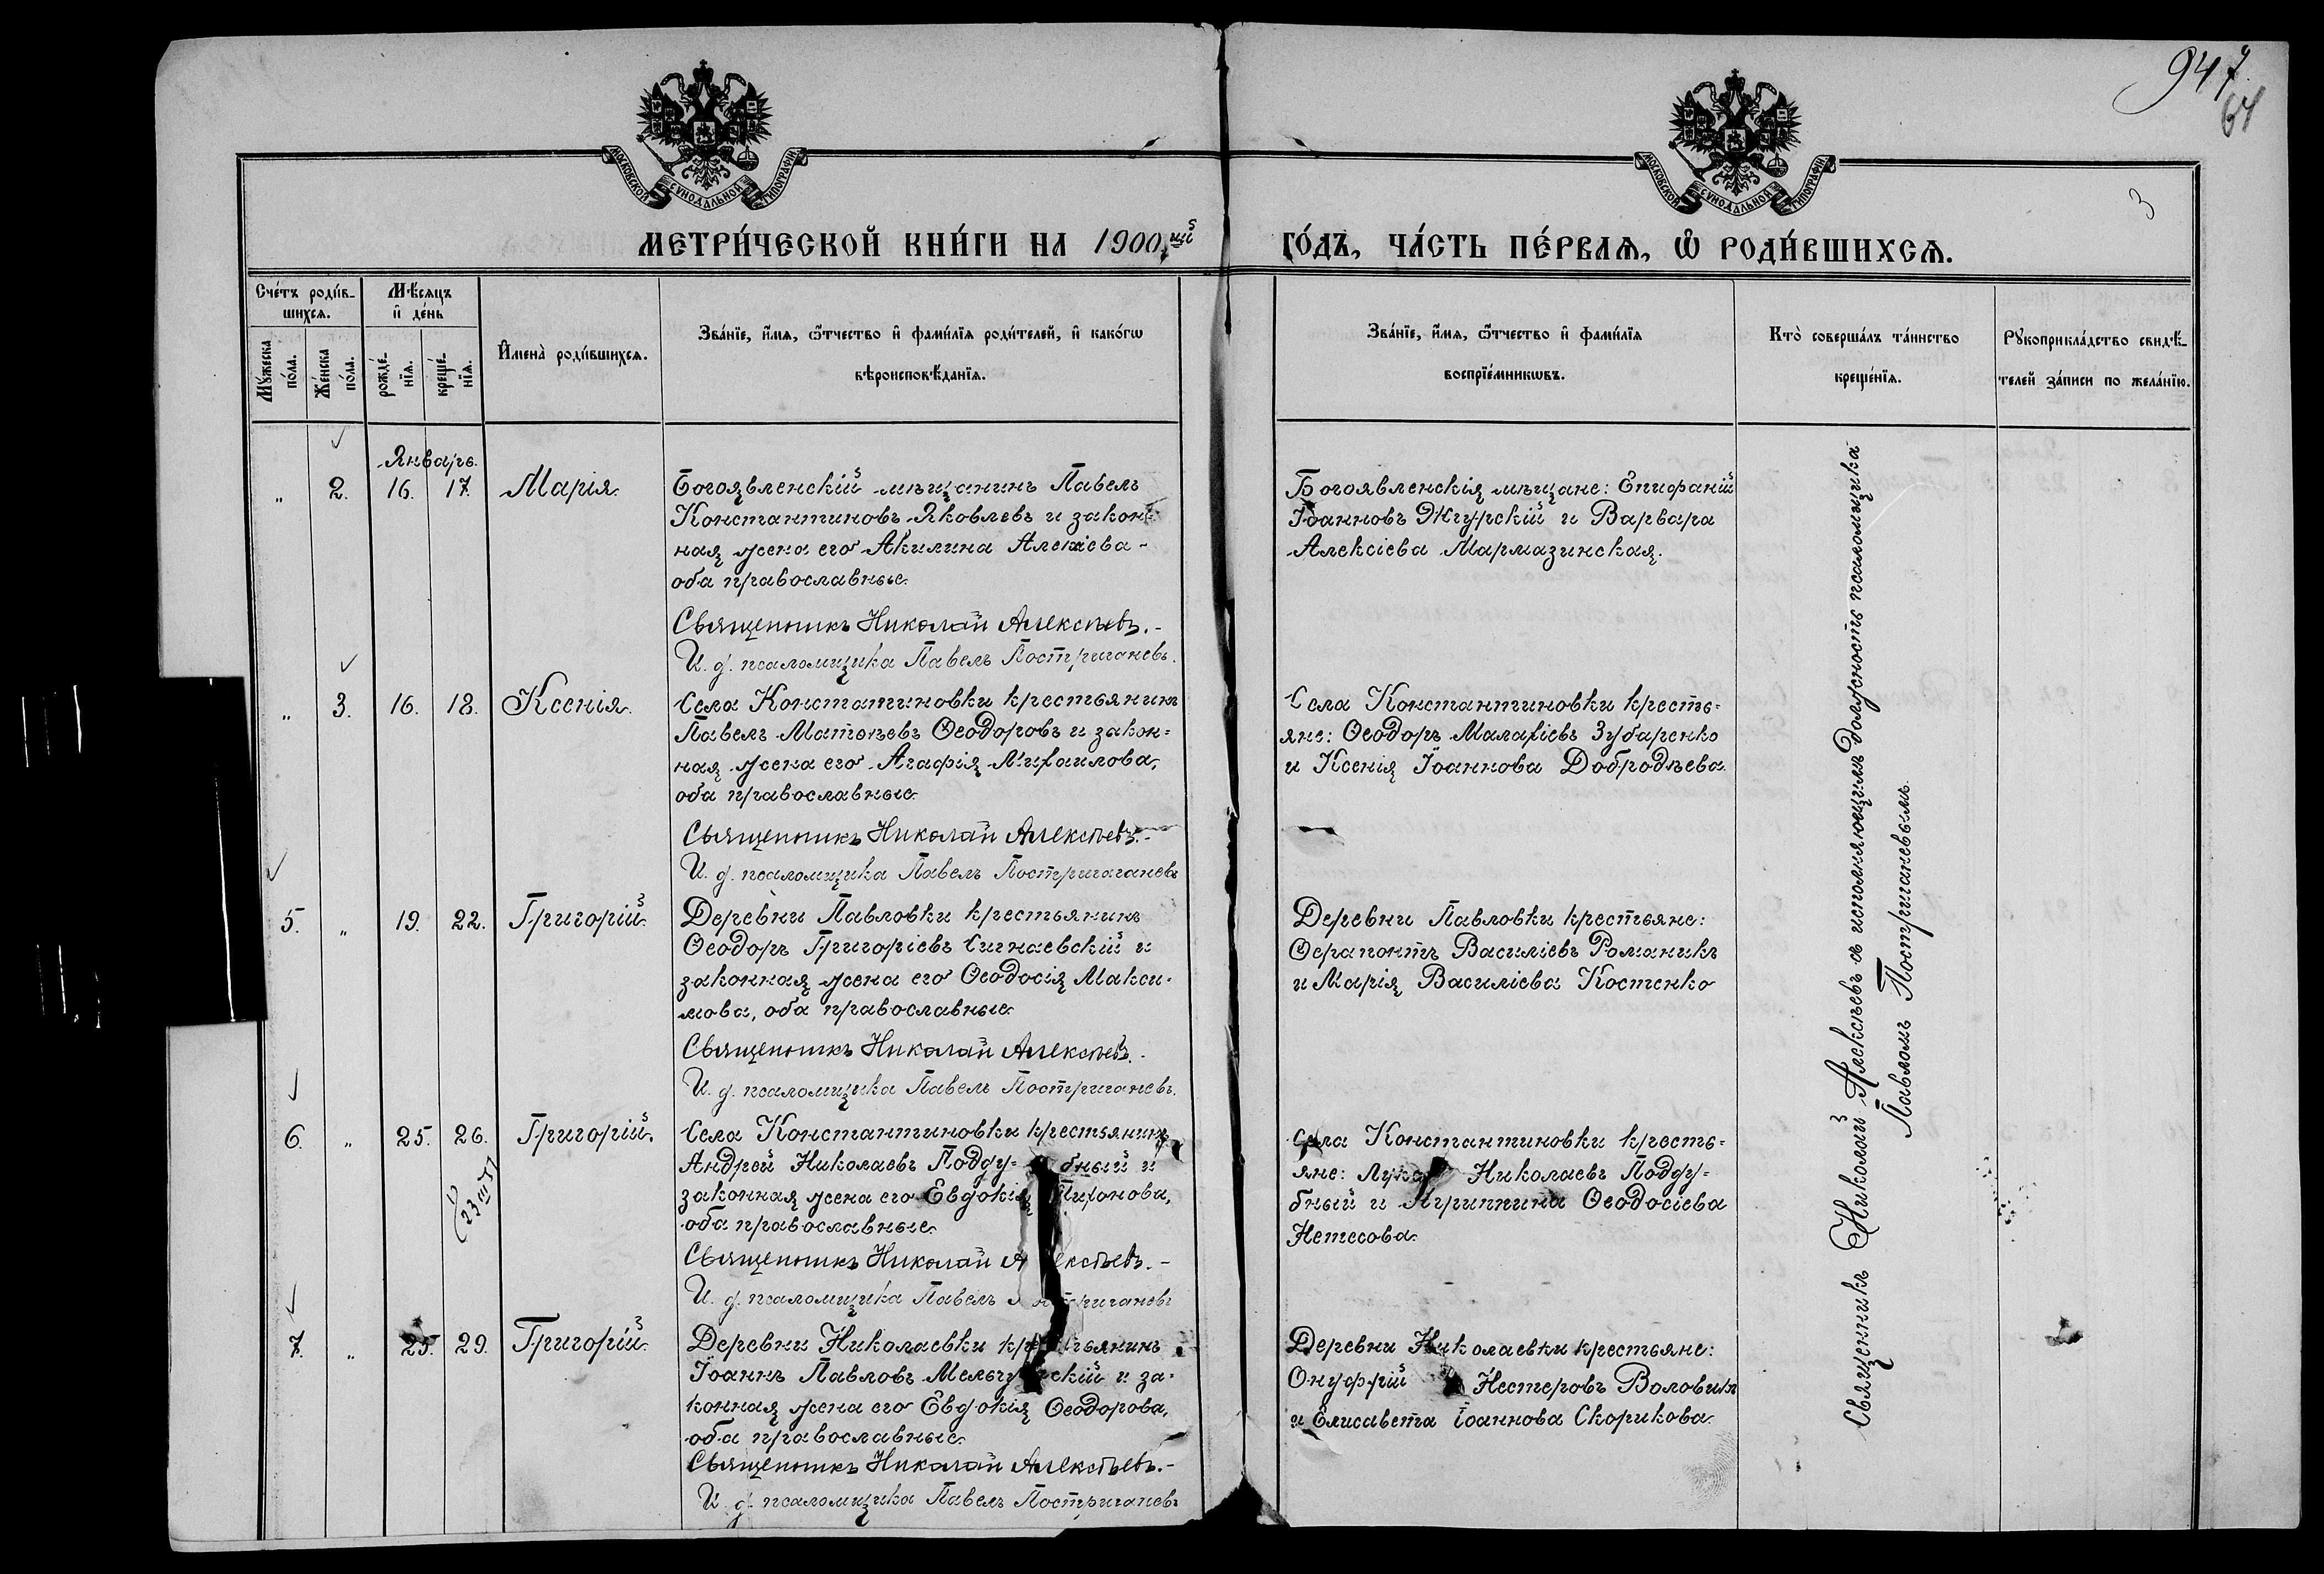 947.
64
3
МОСКОВСКОЙ СѴНОДАЛЬНОЙ ТИПОГРАФІИ
МОСКОВСКОЙ СѴНОДАЛЬНОЙ ТИПОГРАФІИ
МЕТРИ́ЧЕСКОЙ КНИ́ГИ НА 1900ый
ГО́ДЪ, ЧА́СТЬ ПЕ́РВАѦ, Ѡ҆ РОДИ́ВШИХСѦ.
Сче́тъ роди́в-
шихсѧ.
Мꙋ́жеска по́ла.
Же́нска по́ла.
Мѣ́сѧцъ
и҆ де́нь
рожде́-
нїѧ.
креще́-
нїѧ.
И҆мена̀ роди́вшихсѧ.
Зва́нїе, и҆́мѧ, ѻ҆́тчество и҆ фами́лїѧ роди́телей, и҆ како́гѡ
вѣроисповѣ́данїѧ.
Зва́нїе, и҆́мѧ, ѻ҆́тчество и҆ фами́лїѧ
воспрїе́мникѡвъ.
Кто̀ соверша́лъ та́инство
креще́нїѧ.
Рꙋкоприкла́дство свидѣ́-
телей за́писи по жела́нїю.
Январь.
" 2. 16. 17. Марія.
Богоявленскій мѣщанинъ Павелъ
Константиновъ Яковлевъ и закон-
ная жена его Акилина Алексіева -
оба православные.
Священникъ Николай Алексѣевъ.-
И. д. псаломщика Павелъ Постригачевъ.
Богоявленскія мѣщане: Епифаній
Іоанновъ Жгурскій и Варвара
Алексіева Мармазинская.
" 3. 16. 18. Ксенія.
Села Константиновки крестьянинъ
Павелъ Матѳеевъ Ѳеодоровъ и закон=
ная жена его Агафія Михаилова,
оба православные.
Священникъ Николай Алексѣевъ.-
И. д. псаломщика Павелъ Постригачевъ
Села Константиновки кресть=
яне: Ѳеодоръ Малахіевъ Зубаренко
и Ксенія Іоаннова Добродѣева.
5. " 19. 22. Григорій.
Деревни Павловки крестьянинъ
Ѳеодоръ Григоріевъ Сигнаевскій и
законная жена его Ѳеодосія Макси-
мова, оба православные.
Священникъ Николай Алексѣевъ.-
И. д. псаломщика Павелъ Постригачевъ.
Деревни Павловки крестьяне:
Ѳерапонтъ Василіевъ Романикъ
и Марія Василіева Костенко
6. " 25. 26. Григорій.
Села Константиновки крестьянинъ
Андрей Николаевъ Подду= бный и
законная жена его Евдокія Тихонова,
оба православные.
Священникъ Николай Алексѣевъ.-
И. д. псаломщика Павелъ Постригачевъ
Села Константиновки кресть=
яне: Лука Николаевъ Подду=
бный и Агриппина Ѳеодосіева
Нетесова.
7. " 25. 29. Григорій.
Деревни Николаевки крестьянинъ
Іоаннъ Павловъ и за-
конная жена его Евдокія Ѳеодорова,
оба православные.
Священникъ Николай Алексѣевъ.-
И. д. псаломщика Павелъ Постригачевъ
Деревни Николаевки крестьяне:
Онуфрій Нестеровъ
и Елисавета Іоаннова Скорикова.
Священникъ Николай Алексѣевъ съ исполняющимъ должность псаломщика
Павломъ Постригачевымъ.